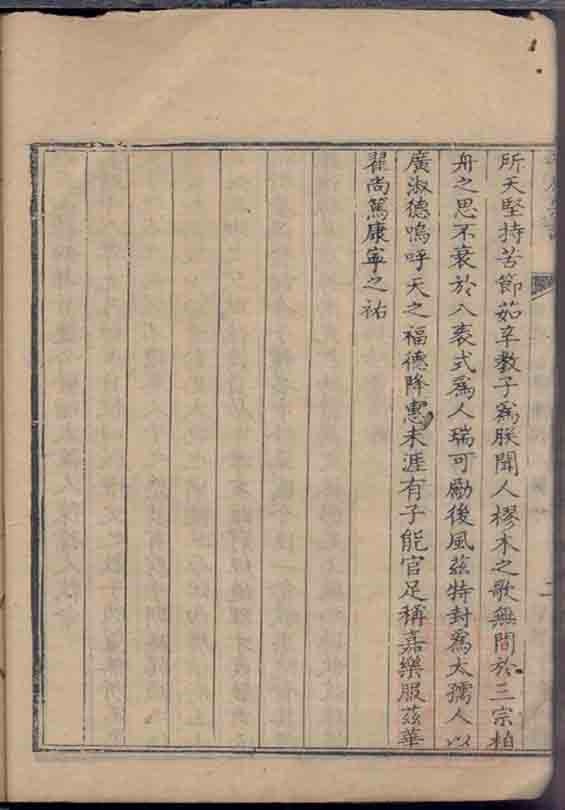 所天堅持苦節茹辛教子爲朕聞人樛木之歌無間於三宗柏
舟之思不衰於八袠式爲人瑞可勵後風茲特封爲太孺人以
廣淑德嗚呼天之福德降惠未涯有子能官足稱嘉樂服茲華
翟尚篤康寧之祜